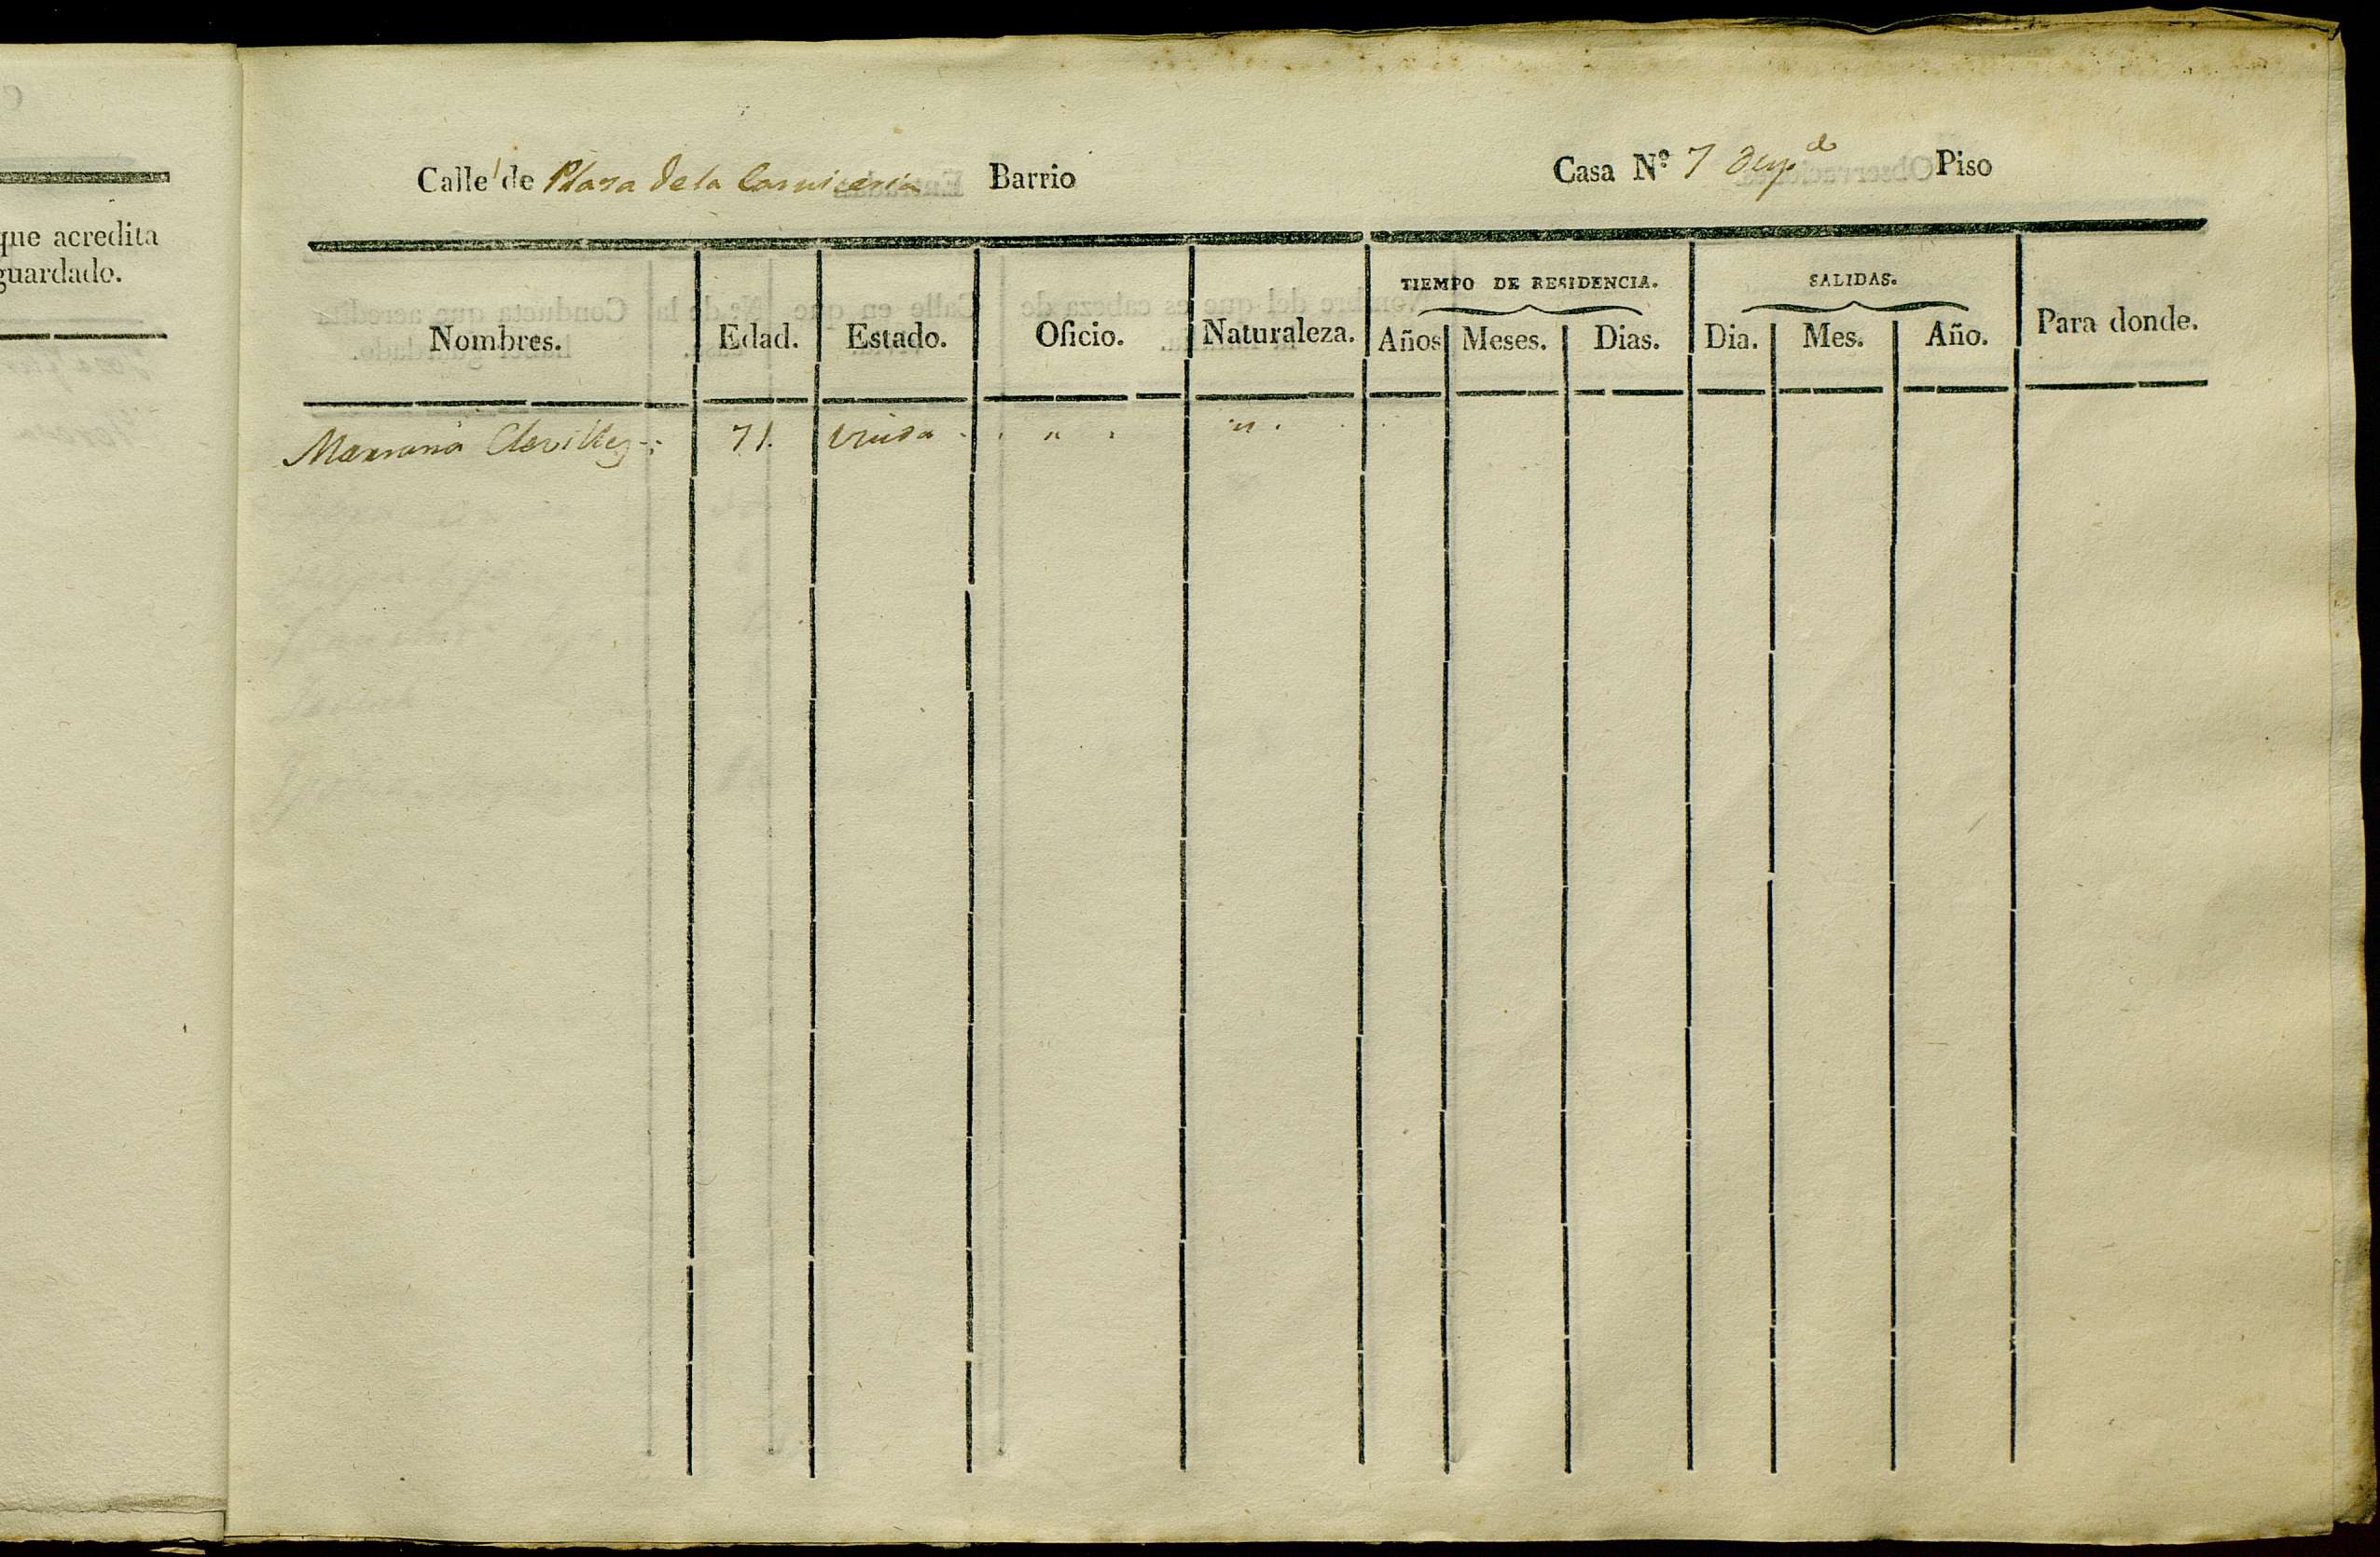 que acredita
guardado.
Calle de Plaza de la Carniceria Barrio Casa N.º 7 Piso
TIEMPO DE RESIDENCIA. SALIDAS.
Nombres. Edad. Estado. Oficio. Naturaleza. Años Meses. Dias. Dia. Mes. Año. Para donde.
Mariana 71. Viuda . . " . " .